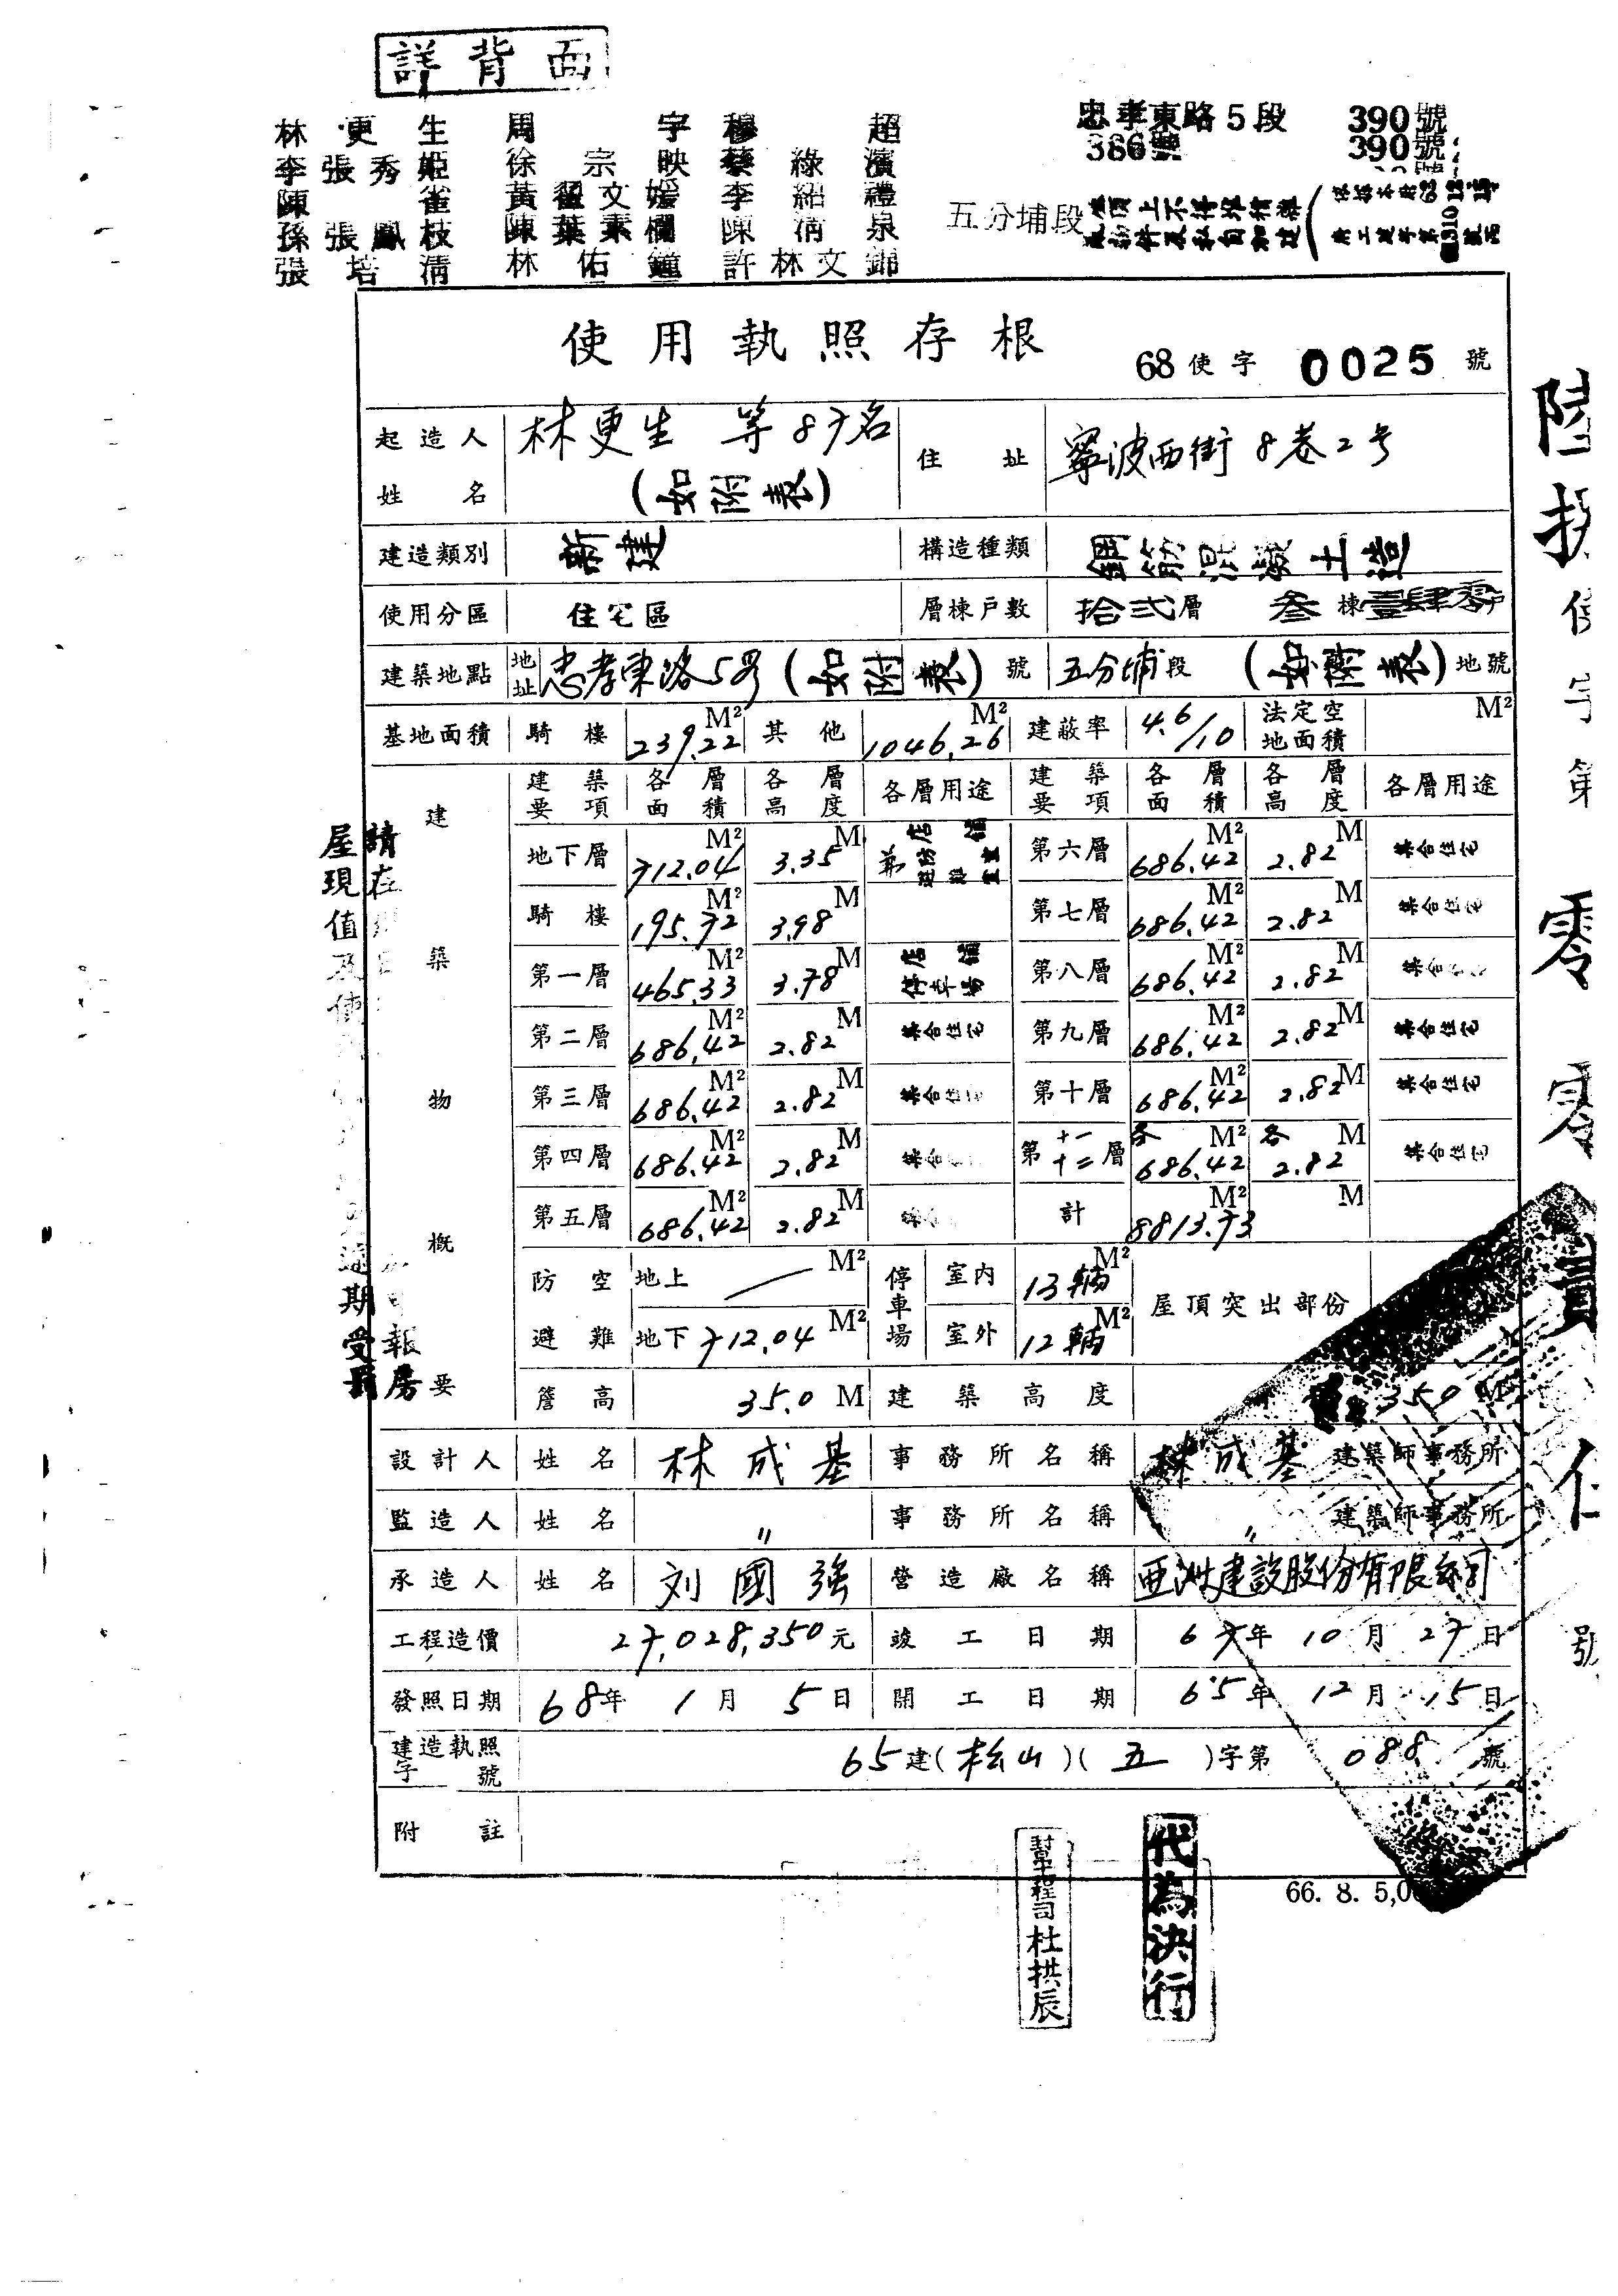 詳背面
林更生 周宇 穆超
李張秀姬 徐宗映 蔡綠濱
陳雀 黃翟文媛 李紹禮
孫張鳳枝 陳葉素欄 陳清泉
張培清 林佑 許林文錦
忠孝東路5段 390號
386號 390號
五分埔段
使用執照存根
68使字 0025 號
起造人姓名 林更生 等87名 (如附表) 住址 寧波西街8巷2号
建造類別 新建 構造種類 鋼筋混凝土造
使用分區 住宅區 層棟戶數 拾弍層 叁棟壹肆零戶
建築地點 地址 忠孝東路5段(如附表)號 五分埔段(如附表)地號
基地面積 騎樓 239.22 M² 其他 1046.26 M² 建蔽率 4.6/10 法定空地面積 M²
建築物概要
建築要項 各層面積 各層高度 各層用途 建築要項 各層面積 各層高度 各層用途
地下層 712.04 M² 3.35 M 第六層 686.42 M² 2.82 M 集合住宅
騎樓 195.72 M² 3.98 M 第七層 686.42 M² 2.82 M 集合住宅
第一層 465.33 M² 3.78 M 店舖 停車場 第八層 686.42 M² 2.82 M 集合住宅
第二層 686.42 M² 2.82 M 集合住宅 第九層 686.42 M² 2.82 M 集合住宅
第三層 686.42 M² 2.82 M 集合住宅 第十層 686.42 M² 2.82 M 集合住宅
第四層 686.42 M² 2.82 M 集合 第十一十二層 各 686.42 M² 各 2.82 M 集合住宅
第五層 686.42 M² 2.82 M 計 8813.73 M² M
防空避難 地上 M² 停車場 室內 13輛 M² 屋頂突出部份
地下 712.04 M² 室外 12輛 M²
簷高 35.0 M 建築高度 35.0 M
設計人 姓名 林成基 事務所名稱 林成基 建築師事務所
監造人 姓名 〃 事務所名稱 〃 建築師事務所
承造人 姓名 刘國強 營造廠名稱 亞洲建設股份有限公司
工程造價 27,028,350元 竣工日期 67年10月27日
發照日期 68年1月5日 開工日期 65年12月15日
建造執照字號 65建(松山)(五)字第 088 號
附註
66. 8. 5,0
幫工程司杜拱辰
代為決行
使字第零零
號